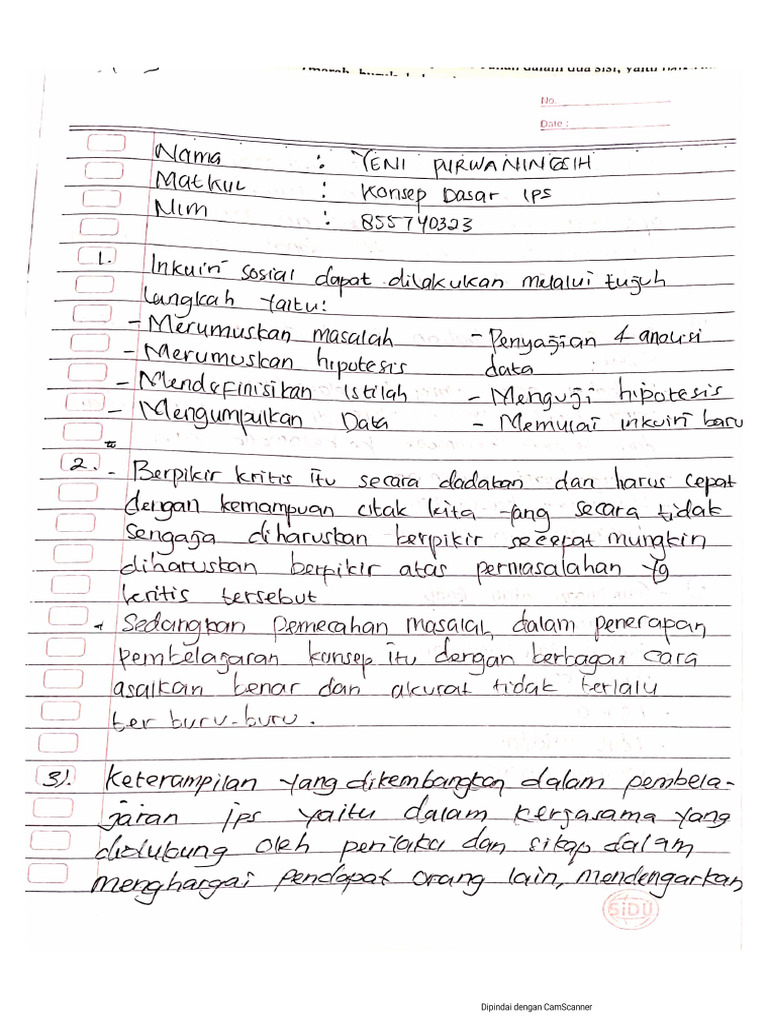 dalam dua sisi, yaitu
No.
Date :
Nama : YENI PURWANINGSIH
Matkul : Konsep Dasar IPS
Nim : 855740323
1. Inkuiri sosial dapat dilakukan melalui tujuh
langkah yaitu:
- Merumuskan masalah - Penyajian & analisi
- Merumuskan hipotesis data
- Mendefinisikan Istilah - Menguji hipotesis
- Mengumpulkan Data - Memulai inkuiri baru
2. - Berpikir kritis itu secara dadakan dan harus cepat
dengan kemampuan otak kita yang secara tidak
sengaja diharuskan berpikir secepat mungkin
diharuskan berpikir atas permasalahan yg
kritis tersebut
- Sedangkan pemecahan masalah, dalam penerapan
pembelajaran konsep itu dengan berbagai cara
asalkan benar dan akurat tidak terlalu
ter buru-buru.
3). Keterampilan yang dikembangkan dalam pembela-
jaran ips yaitu dalam kerjasama yang
didukung oleh perilaku dan sikap dalam
menghargai pendapat orang lain, mendengarkan
SiDU
Dipindai dengan CamScanner